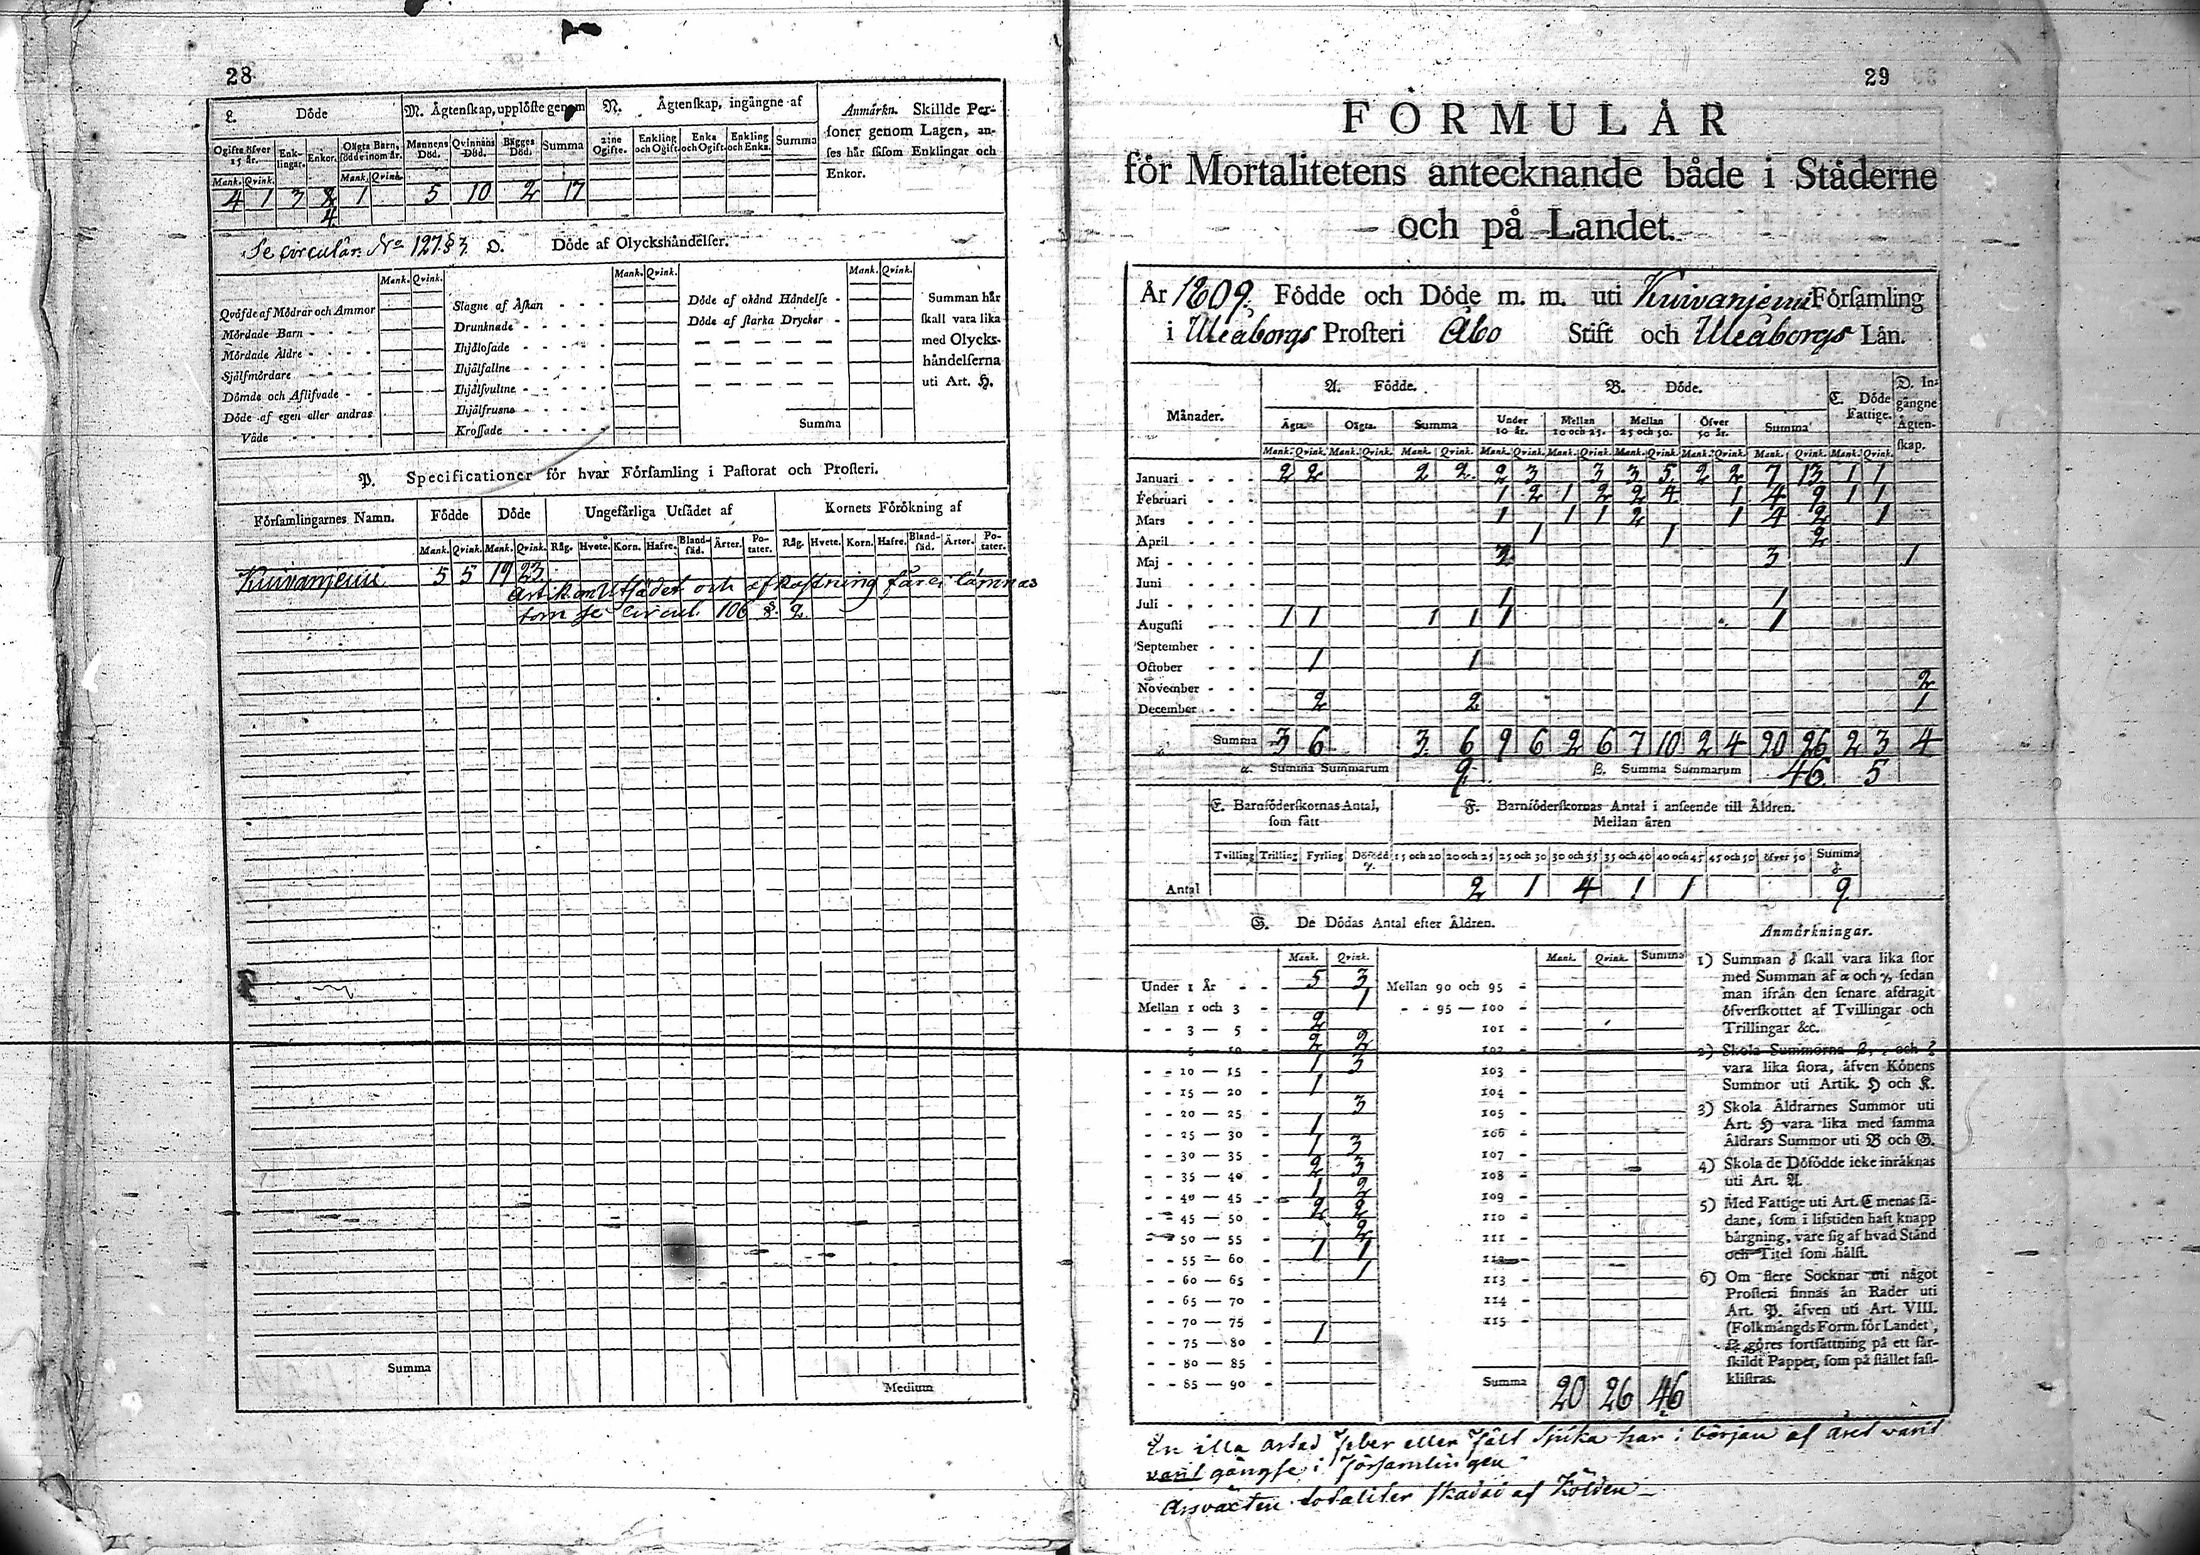 28
L. Döde
M. Ägtenskap, upplöste genom
N. Ägtenskap, ingångne af
Anmärkn. Skillde Personer genom Lagen, anses här såsom Enklingar och Enkor.
Ogifte öfver 15 år.
Enklingar.
Enkor.
Oägta Barn, födde inom år.
Mannens Död.
Qvinnans Död.
Bägges Död.
Summa
2:ne Ogifte.
Enkling och Ogift.
Enka och Ogift.
Enkling och Enka.
Summa
Mank. Qvink. Mank. Qvink.
4 1 3 4 1 5 10 2 17
Se Circulär. No 127 § 3 O. Döde af Olyckshändelser.
Mank. Qvink. Mank. Qvink. Mank. Qvink.
Qväfde af Mödrar och Ammor
Mördade Barn
Mördade Äldre
Själfmördare
Dömde och Aflifvade
Döde af egen eller andras
Våde
Slagne af Åskan
Drunknade
Ihjälosade
Ihjälfallne
Ihjälsvultne
Ihjälfrusne
Krossade
Döde af okänd Händelse
Döde af starka Drycker
Summa
Summan här
skall vara lika
med Olycks-
händelserna
uti Art. H.
P. Specificationer för hvar Församling i Pastorat och Prosteri.
Församlingarnes Namn. Födde Döde Ungefärliga Utsädet af Kornets Förökning af
Mank. Qvink. Mank. Qvink. Råg. Hvete. Korn. Hafre. Bland-säd. Ärter. Po-tater. Råg. Hvete. Korn. Hafre. Bland-säd. Ärter. Po-tater.
Kuivanjemi 5 5 19 23
Art. k om Utsädet och afkastning får ei lämnas
tom se Circul. 106 § 2
Summa
Medium
29
FORMULÄR
för Mortalitetens antecknande både i Städerne
och på Landet.
År 1809. Födde och Döde m. m. uti Kuivanjemi Församling
i Uleåborgs Prosteri Åbo Stift och Uleåborgs Län.
Månader. A. Födde. B. Döde. C. Döde Fattige. D. Ingångne Ägtenskap.
Ägta. Oägta. Summa Under 10 år. Mellan 10 och 25. Mellan 25 och 50. Öfver 50 år. Summa
Mank. Qvink. Mank. Qvink. Mank. Qvink. Mank. Qvink. Mank. Qvink. Mank. Qvink. Mank. Qvink. Mank. Qvink. Mank. Qvink.
Januari 2 2 2 2 2 3 3 3 5 2 2 7 13 1 1
Februari 1 2 1 2 2 4 1 4 9 1 1
Mars 1 1 1 2 1 4 2 1
April 1 1 2
Maj 3 3 1
Juni
Juli 1 1
Augusti 1 1 1 1 1 1
September
October 1 1
November 2
December 2 2 1
Summa 3 6 3 6 9 6 2 6 7 10 2 4 20 26 2 3 4
α. Summa Summarum 9 β. Summa Summarum 46 5
E. Barnföderskornas Antal, som fått
F. Barnföderskornas Antal i anseende till Åldren. Mellan åren
Tvilling Trilling Fyrling Dödfödd γ. 15 och 20 20 och 25 25 och 30 30 och 35 35 och 40 40 och 45 45 och 50 öfver 50 Summa δ
Antal 2 1 4 1 1 9
G. De Dödas Antal efter Åldren.
Mank. Qvink. Mank. Qvink. Summa
Under 1 År 5 3 Mellan 90 och 95
Mellan 1 och 3 1 95 — 100
3 — 5 2 101
5 — 10 2 2 102
10 — 15 1 3 103
15 — 20 1 104
20 — 25 3 105
25 — 30 1 106
30 — 35 1 3 107
35 — 40 2 3 108
40 — 45 1 2 109
45 — 50 2 2 110
50 — 55 2 111
55 — 60 1 1 112
60 — 65 1 113
65 — 70 114
70 — 75 115
75 — 80 1
80 — 85
85 — 90 Summa 20 26 46
Anmärkningar.
1) Summan δ skall vara lika stor
med Summan af α och γ, sedan
man ifrån den senare afdragit
öfverskottet af Tvillingar och
Trillingar &c.
2) Skola Summorna
vara lika stora, äfven Könens
Summor uti Artik. H och K.
3) Skola Åldrarnes Summor uti
Art. H vara lika med samma
Åldrars Summor uti B och G.
4) Skola de Döfödde icke inräknas
uti Art. A.
5) Med Fattige uti Art. C menas så-
dane, som i lifstiden haft knapp
bärgning, vare sig af hvad Stånd
och Titel som hälst.
6) Om flere Socknar uti något
Prosteri finnas än Rader uti
Art. P. äfven uti Art. VIII.
(Folkmängds Form. för Landet),
så göres fortsättning på ett sär-
skildt Papper, som på stället fast-
klistras.
En illa artad feber eller fält sjuka har i början af året varit
varit gångse i församlingen
Årsväxten totaliter skadad af Kölden